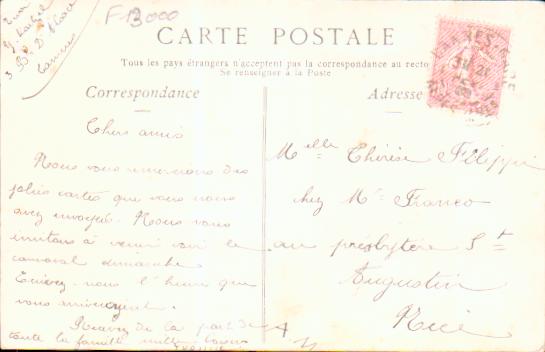 F 13000
3 B D
Cannes
CARTE POSTALE
Tous les pays étrangers n'acceptent pas la correspondance au recto
Se renseigner à la Poste
Correspondance
Chers amis
Nous vous remercions des
jolies cartes que vous nous
avez envoyées. Nous vous
invitons à venir voir le
carnaval dimanche
Ecrivez-nous l'heure que
vous arriverez
Recevez de la part de
toute la famille mille
Adresse
Melle Thérèse Filippi
chez Mr Franco
au presbytère St
Augustin
Nice